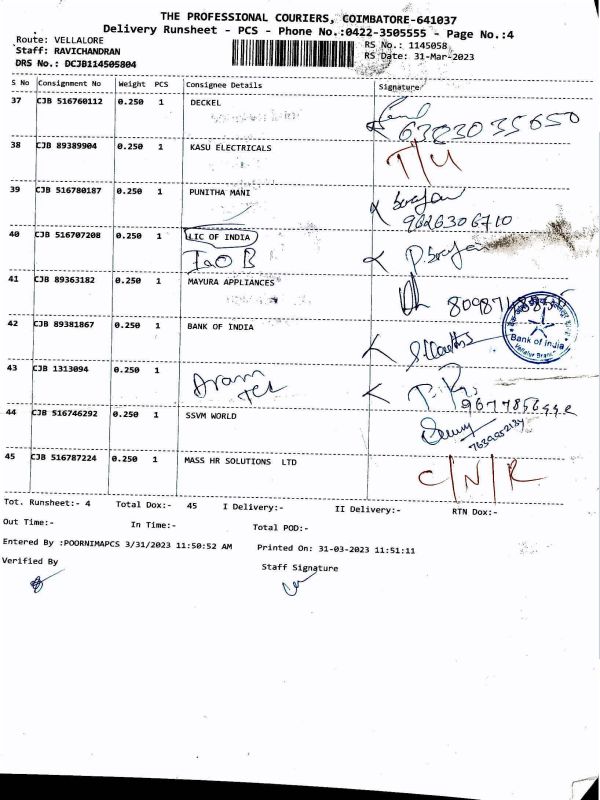 THE PROFESSIONAL COURIERS, COIMBATORE-641037
Delivery Runsheet - PCS - Phone No.:0422-3505555 - Page No.:4
Route: VELLALORE
RS No.: 1145058
Staff: RAVICHANDRAN
RS Date: 31-Mar-2023
DRS No.: DCJB114505804
S No Consignment No Weight PCS Consignee Details Signature
37 CJB 516760112 0.250 1 DECKEL
6303035650
38 CJB 89389904 0.250 1 KASU ELECTRICALS T/U
39 CJB 516780187 0.250 1 PUNITHA MANI
9626306710
40 CJB 516707208 0.250 1 LIC OF INDIA
IOB
41 CJB 89363182 0.250 1 MAYURA APPLIANCES
42 CJB 89381867 0.250 1 BANK OF INDIA
Bank of India
Vellalur Branch
43 CJB 1313094 0.250 1
Aram
Tex
44 CJB 516746292 0.250 1 SSVM WORLD
45 CJB 516787224 0.250 1 MASS HR SOLUTIONS LTD C/N/R
Tot. Runsheet:- 4 Total Dox:- 45 I Delivery:- II Delivery:- RTN Dox:-
Out Time:- In Time:- Total POD:-
Entered By :POORNIMAPCS 3/31/2023 11:50:52 AM Printed On: 31-03-2023 11:51:11
Verified By Staff Signature